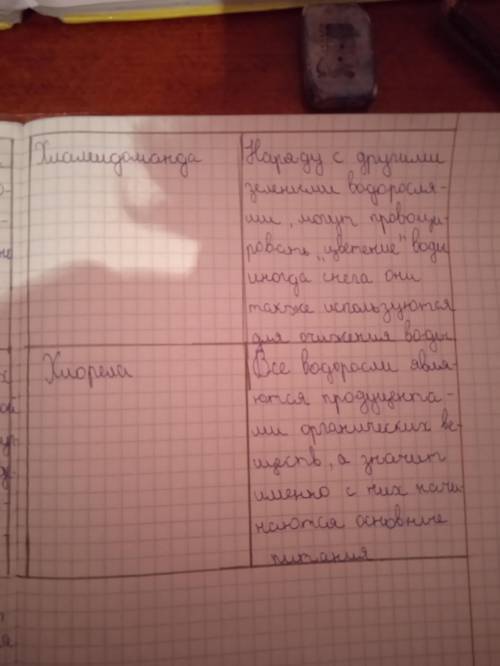 Хламидоманда
Наряду с другими
зелеными водоросля-
ми, могут провоци-
ровать "цветение" воды
иногда снега они
также используются
для очижения воды
Хлорела
Все водоросли явля-
ются продуцента-
ми органических ве-
ществ, а значит
именно с них начи-
наются основные
питания